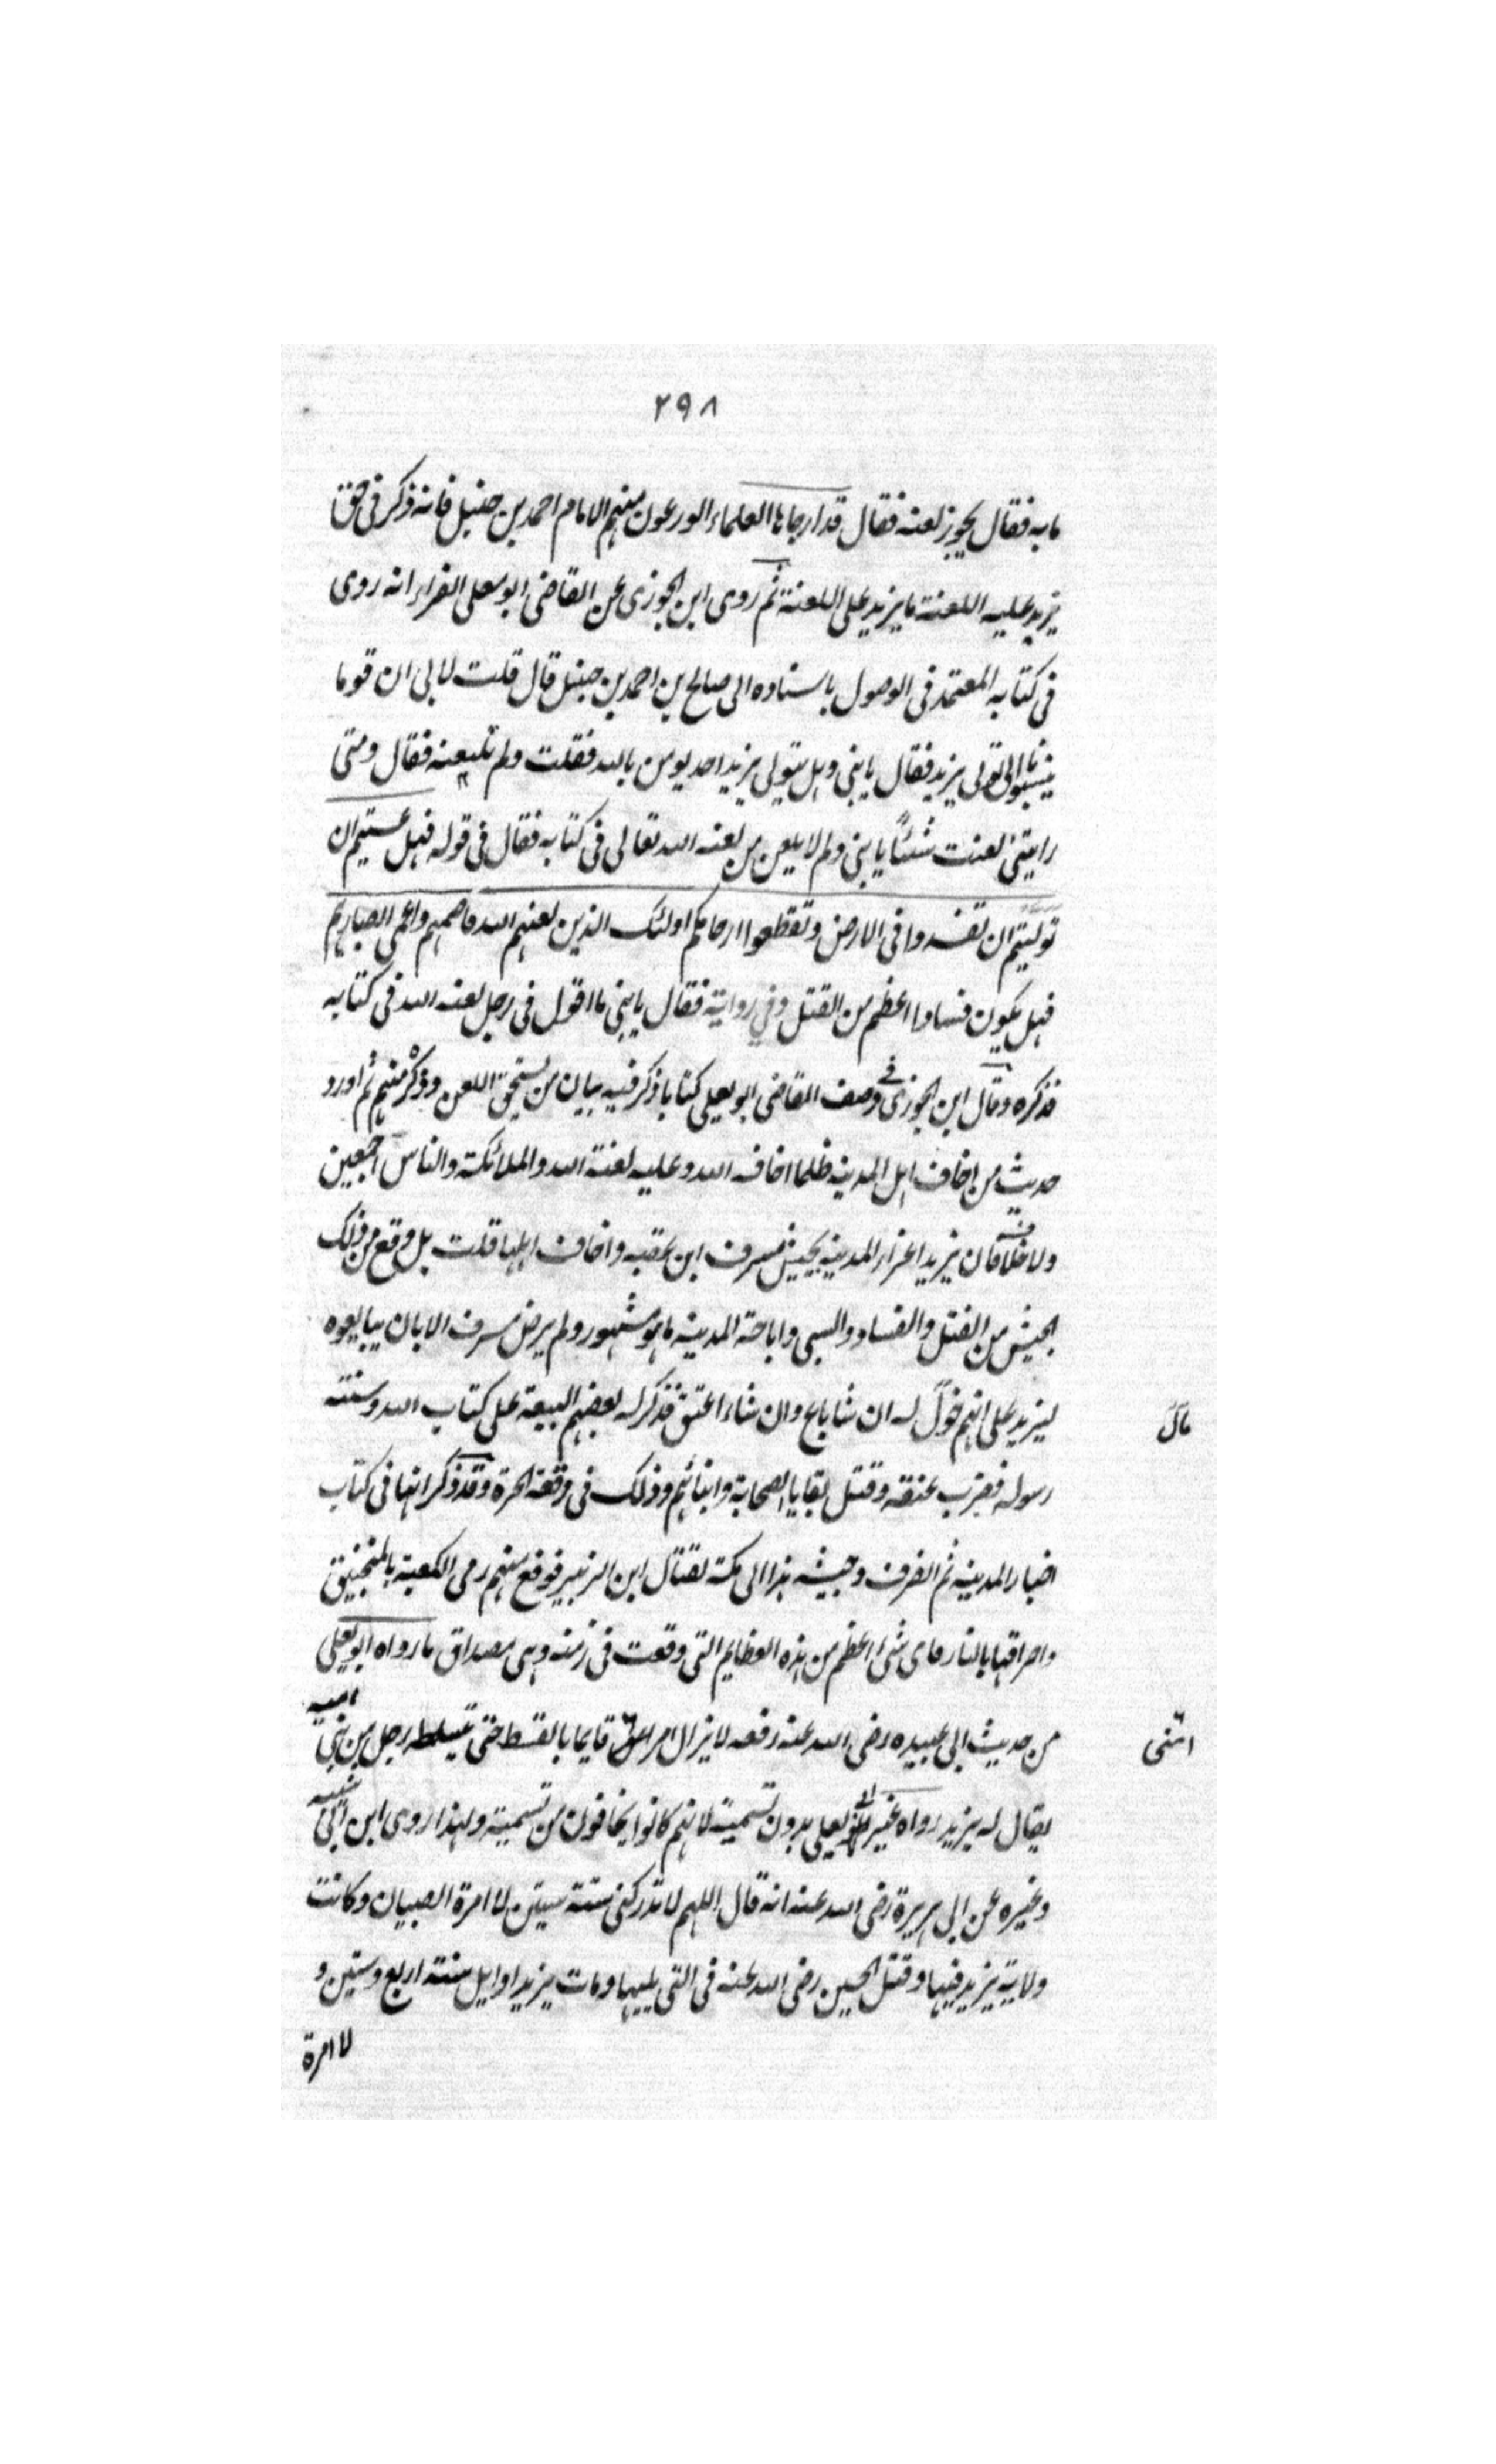 ٢٩٨
مابه فقال يجوز لعنه فقال قد اجازها العلماء الورعون منهم الامام احمد بن حنبل فانه ذكر في حق
يزيد عليه اللعنة ما يزيد على اللعنة ثم روى ابن الجوزى عن القاضى ابو يعلى الفراء انه روى
فى كتابه المعتمد فى الوصول باسناده الى صالح بن احمد بن حنبل قال قلت لابى ان قوما
ينسبونا الى تولى يزيد فقال يا بنى وهل يتولى يزيد احد يومن بالله فقلت ولم لا تلعنه فقال ومتى
رايتنى لعنت شئاً يا بنى ولم لا يلعن من لعنه الله تعالى فى كتابه فقال فى قوله فهل عسيتم ان
توليتم ان تفسدوا فى الارض وتقطعوا ارحامكم اولئك الذين لعنهم الله فاصمهم واعمى ابصارهم
فهل يكون فسادا اعظم من القتل وفي رواية فقال يا بنى ما اقول فى رجل لعنه الله فى كتابه
فذكره وقال ابن الجوزى وصنف القاضى ابو يعلى كتابا ذكر فيه بيان من يستحق اللعن وذكر منهم ثم اورد
حديث من اخاف اهل المدينه ظلما اخافه الله وعليه لعنة الله والملائكة والناس اجمعين
ولا خلاف ان يزيد اغزا المدينه بجيش مسرف ابن عقبه واخاف اهلها قلت بل وقع من ذلك
الجيش من القتل والفساد والسبى واباحة المدينه ما هو مشهور ولم يرض مسرف الا بان يبايعوه
ليزيد على انهم خول له ان شا باع وان شاء اعتق فذكر له بعضهم البيعة على كتاب الله وسنته
مآل
رسوله فضرب عنقه وقتل بقايا الصحابة وابنائهم وذلك فى وقعة الحرة وقد ذكرانها فى كتاب
اخبار المدينه ثم انصرف وجيشه هذا الى مكة لقتال ابن الزبير فوقع منهم رمى الكعبة بالمنجنيق
واحراقها بالنار فاى شئ اعظم من هذه العظايم التى وقعت فى زمنه وهى مصداق ما رواه ابو يعلى
من حديث ابى عبيده رضى الله عنه رفعه لا يزال امر امتى قايما بالقسط حتى يتسلط رجل من بنى اميه
امتى
يقال له يزيد رواه غير ابى يعلى بدون تسمية لانهم كانوا يخافون من تسميته ولهذا روى ابن ابى شيبه
وغيره عن ابى هريرة رضى الله عنه انه قال اللهم لا تدركنى سنة ستين لا امرة الصبيان وكانت
ولاية يزيد فيها وقتل الحسين رضى الله عنه فى التى يليها ومات يزيد اوايل سنة اربع وستين و
لا امرة